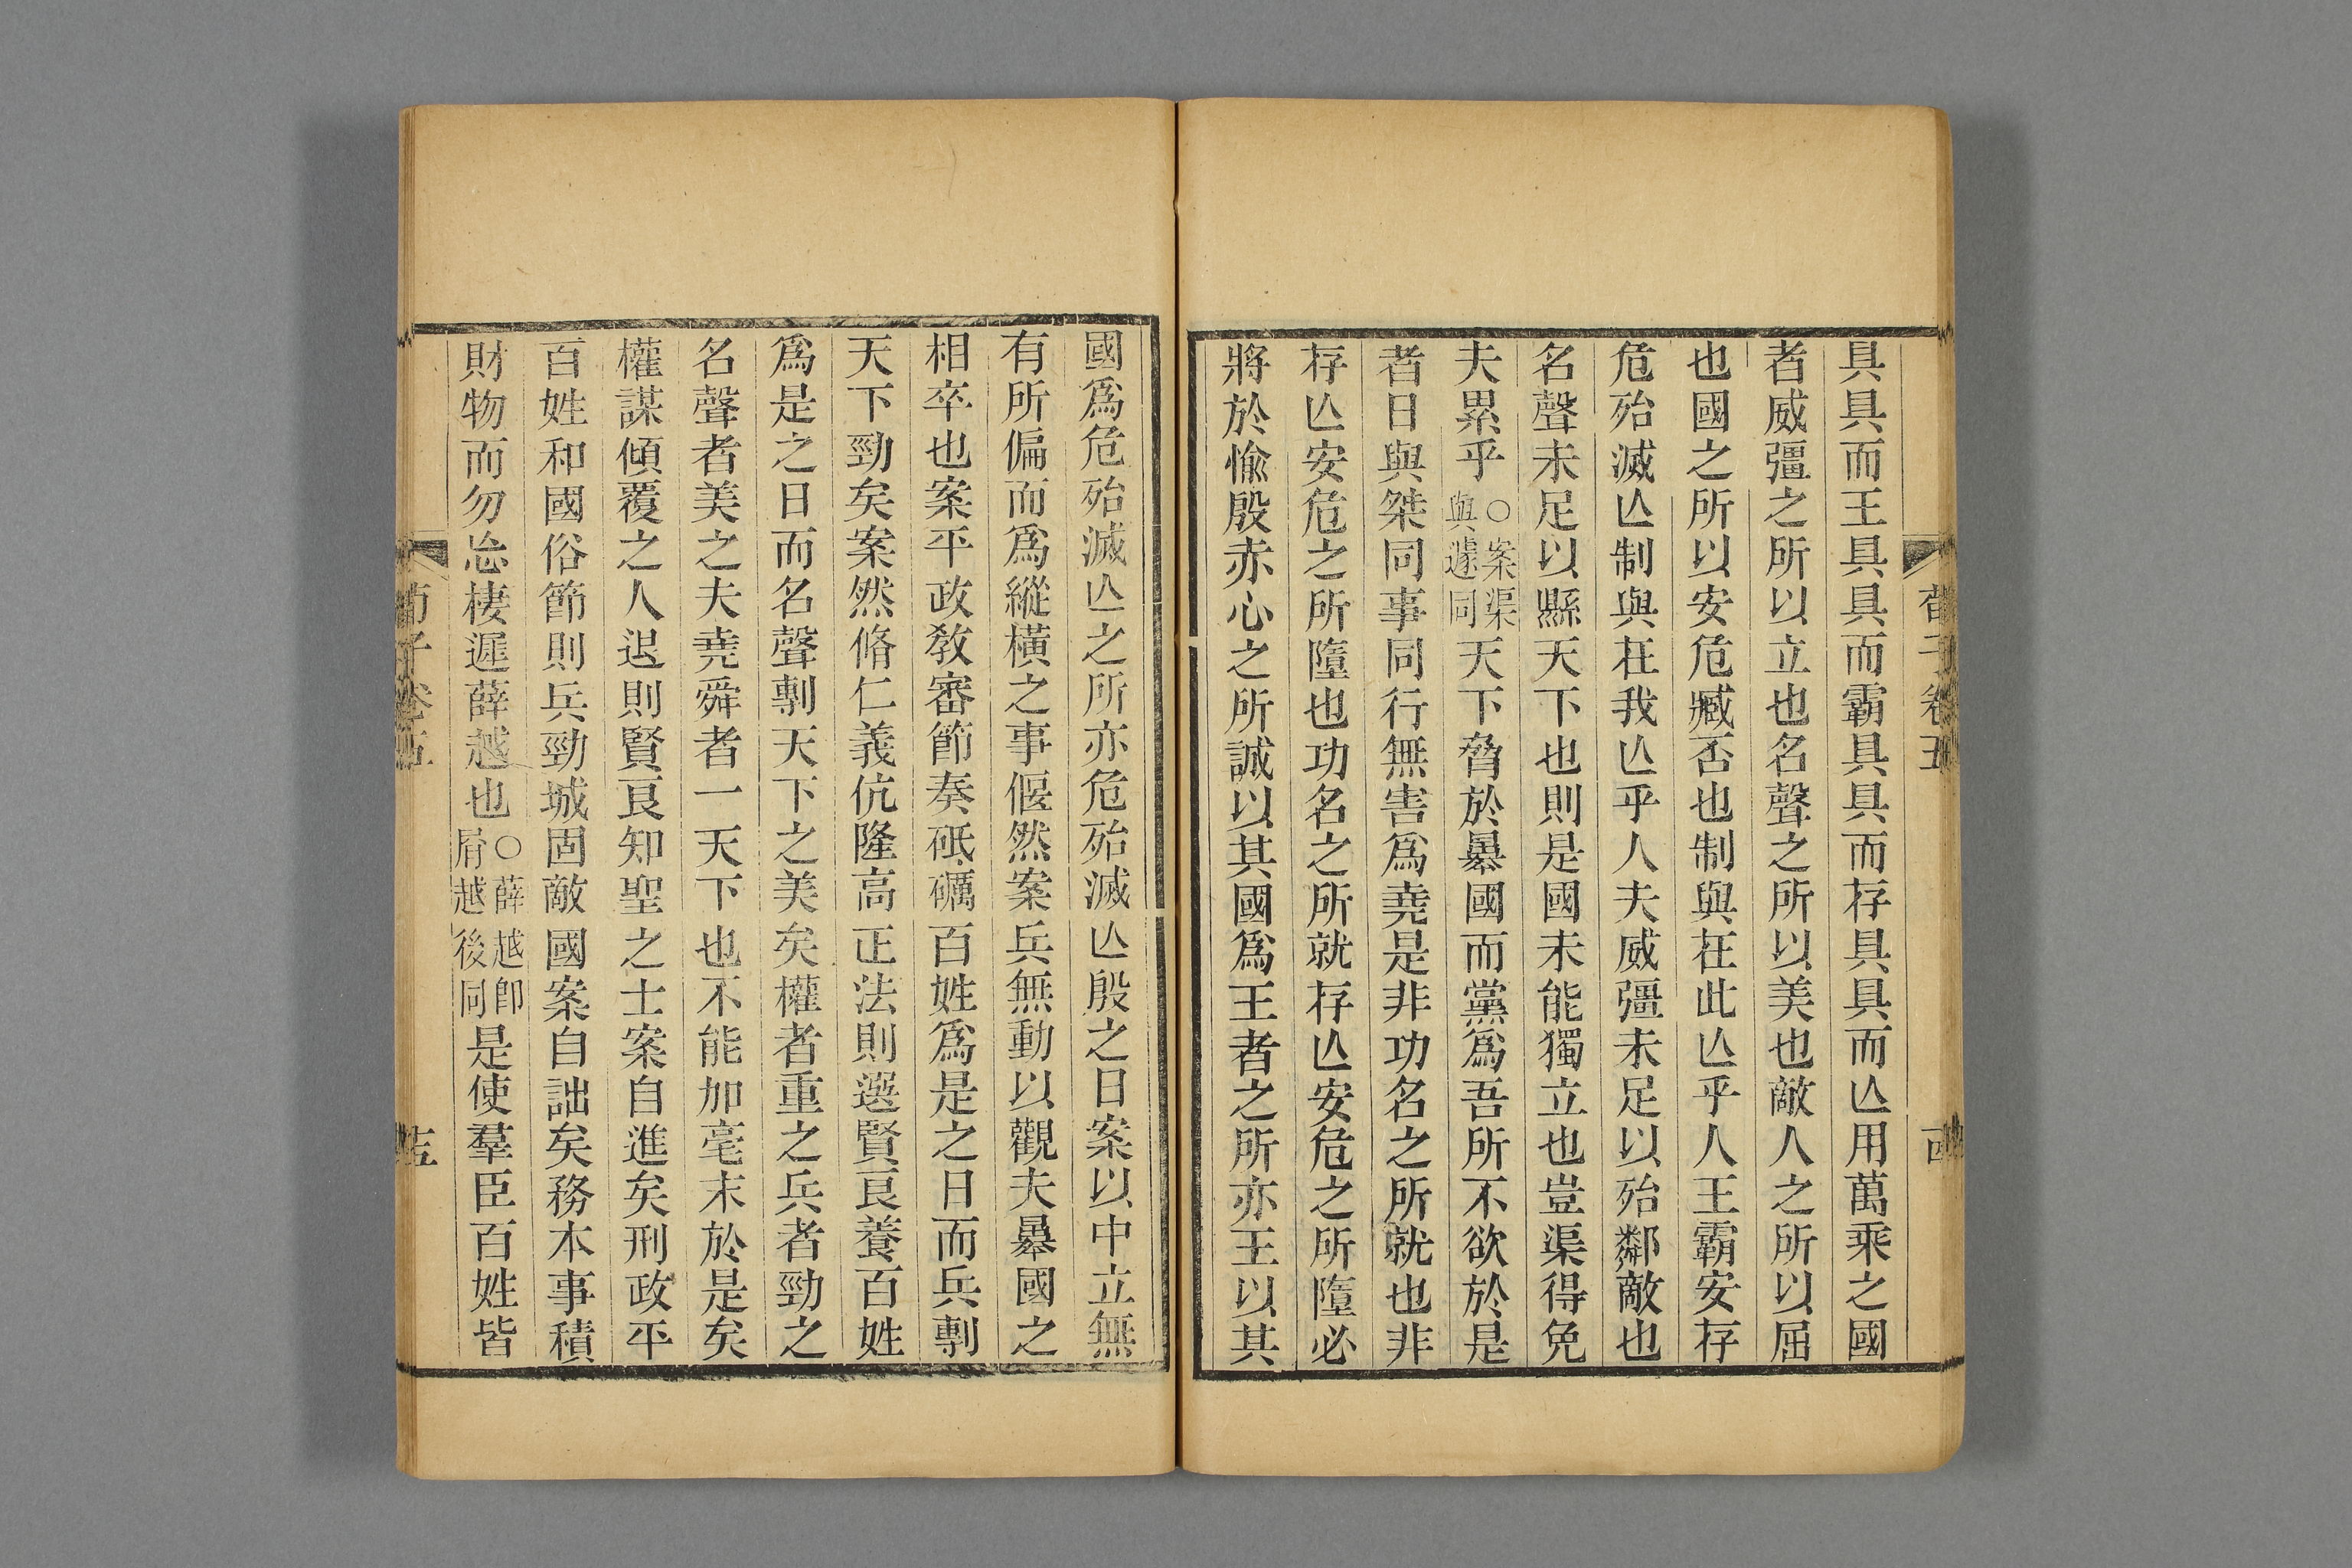 荀子卷五
具具而王具具而霸具具而存具具而亾用萬乘之國
者威彊之所以立也名聲之所以美也敵人之所以屈
也國之所以安危臧否也制與在此亾乎人王霸安存
危殆滅亾制與在我亾乎人夫威彊未足以殆鄰敵也
名聲未足以縣天下也則是國未能獨立也豈渠得免
夫累乎○案渠與遽同天下脅於暴國而黨爲吾所不欲於是
者日與桀同事同行無害爲堯是非功名之所就也非
存亾安危之所墮也功名之所就存亾安危之所墮必
將於愉殷赤心之所誠以其國爲王者之所亦王以其
國爲危殆滅亾之所亦危殆滅亾殷之日案以中立無
有所偏而爲縱橫之事偃然案兵無動以觀夫暴國之
相卒也案平政敎審節奏砥礪百姓爲是之日而兵剸
天下勁矣案然脩仁義伉隆高正法則選賢良養百姓
爲是之日而名聲剸天下之美矣權者重之兵者勁之
名聲者美之夫堯舜者一天下也不能加毫末於是矣
權謀傾覆之人退則賢良知聖之士案自進矣刑政平
百姓和國俗節則兵勁城固敵國案自詘矣務本事積
財物而勿忘棲遲薛越也○薛越卽屑越後同是使羣臣百姓皆
荀子卷五